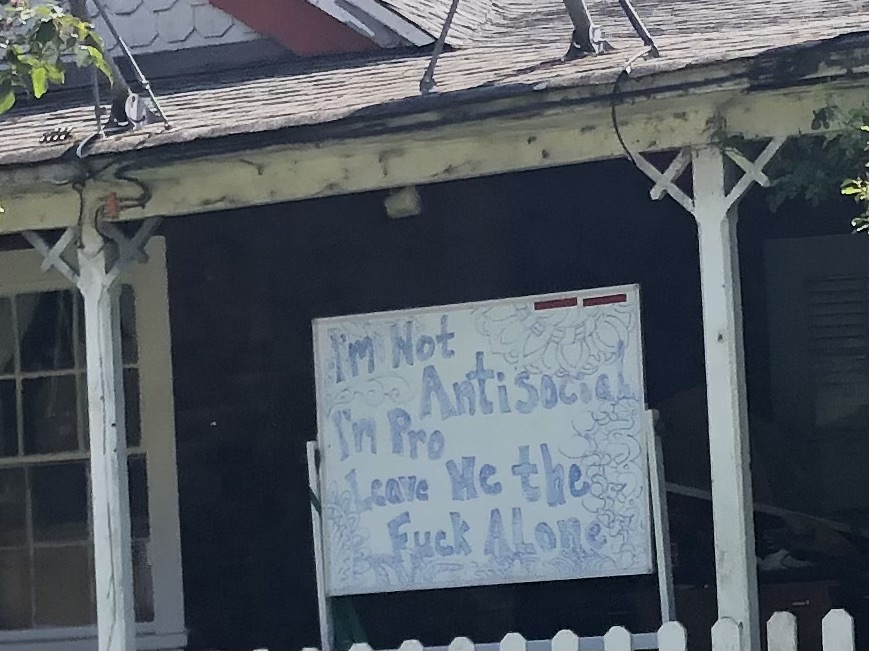 I'm Not
Antisocial
I'm Pro
Leave Me the
Fuck ALone